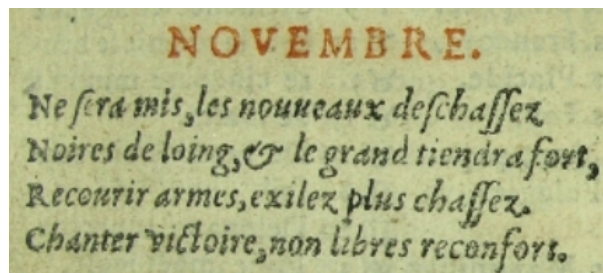 NOVEMBRE.
Ne ſera mis, les nouueaux deſchaſſez
Noires de loing, & le grand tiendra fort,
Recourir armes, exilez plus chaſſez.
Chanter victoire, non libres reconfort.